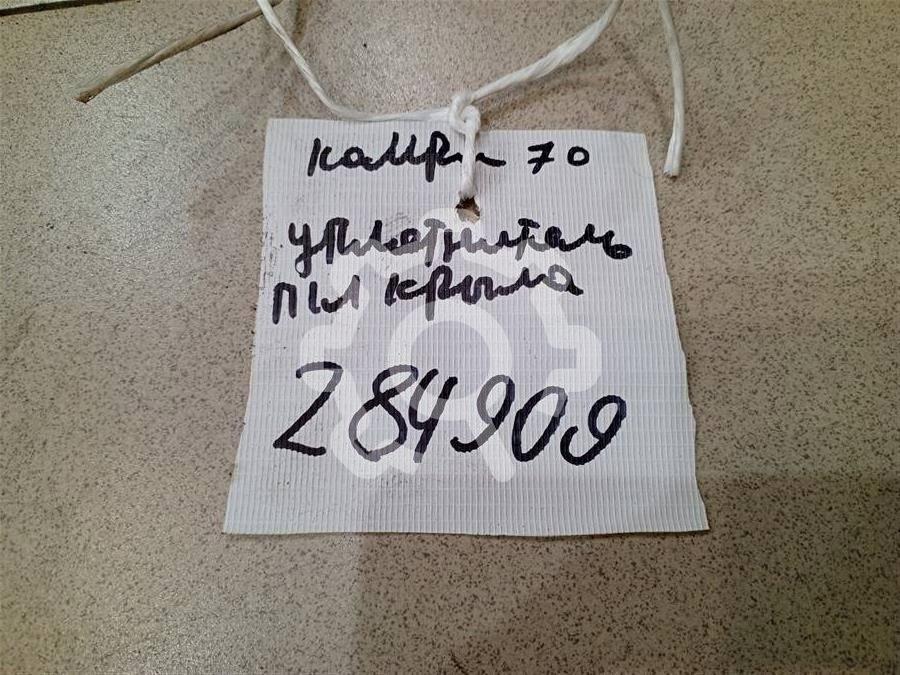 камри 70
уплотнитель
пл крыла
284909